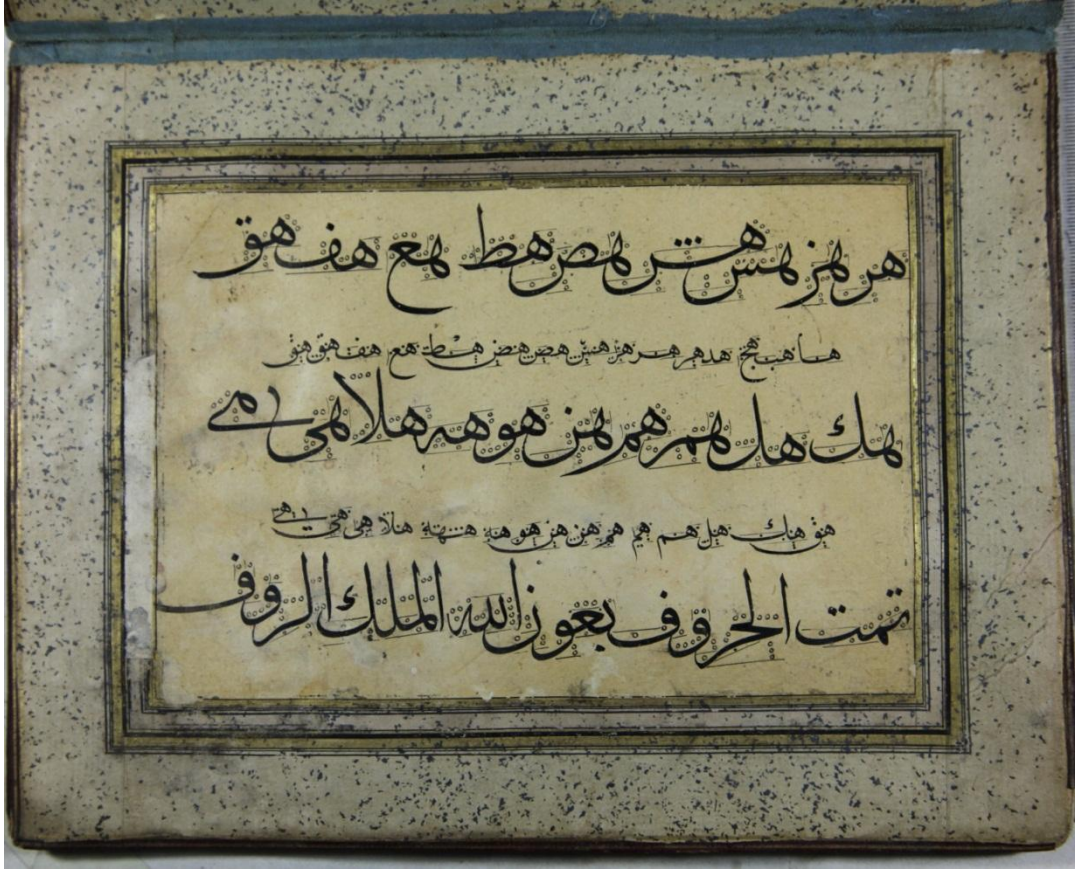 هر هز هس هش هص هط هع هف هق
ها هب هج هد هر هر هز هس هص هض هط هع هف هق هق
هك هل هم هم هن هو هه هلا هي ے
هق هك هل هم هم هم هن هن هو هه هلا هي هي ے
تمت الحروف بعون الله الملك الرؤف